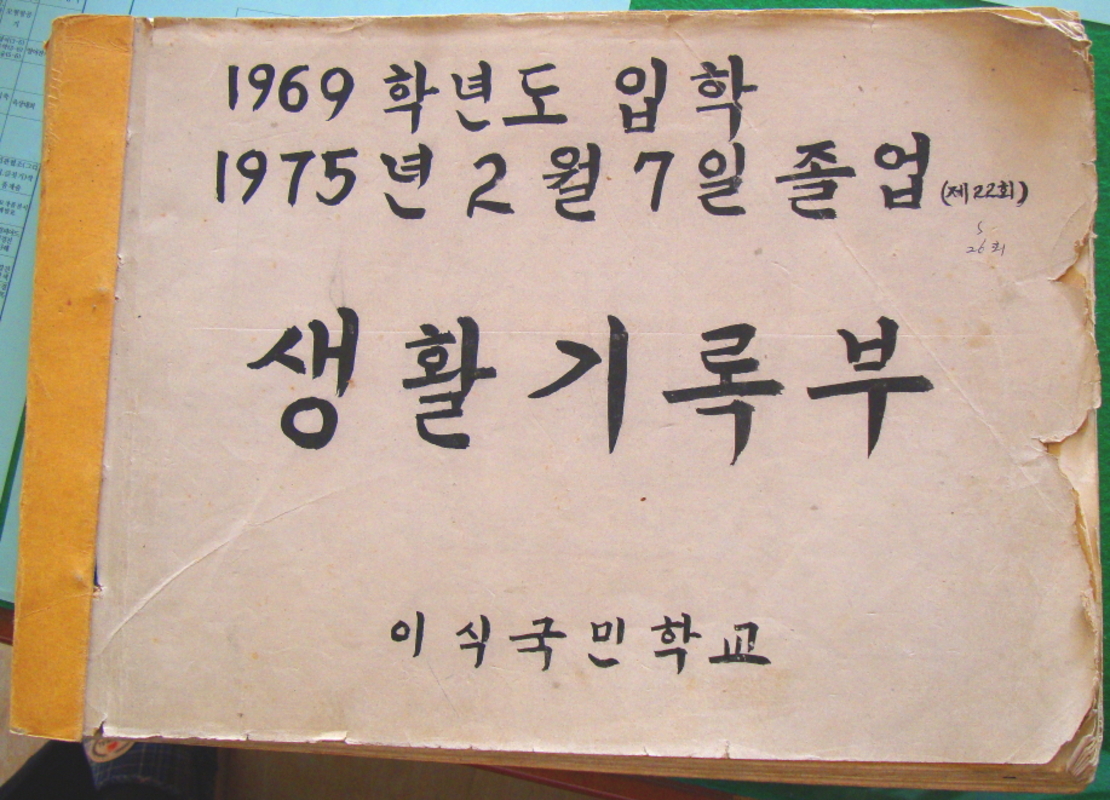 1969 학년도 입학
1975 년 2 월 7 일 졸업 (제22회)
26회
생활기록부
이식국민학교